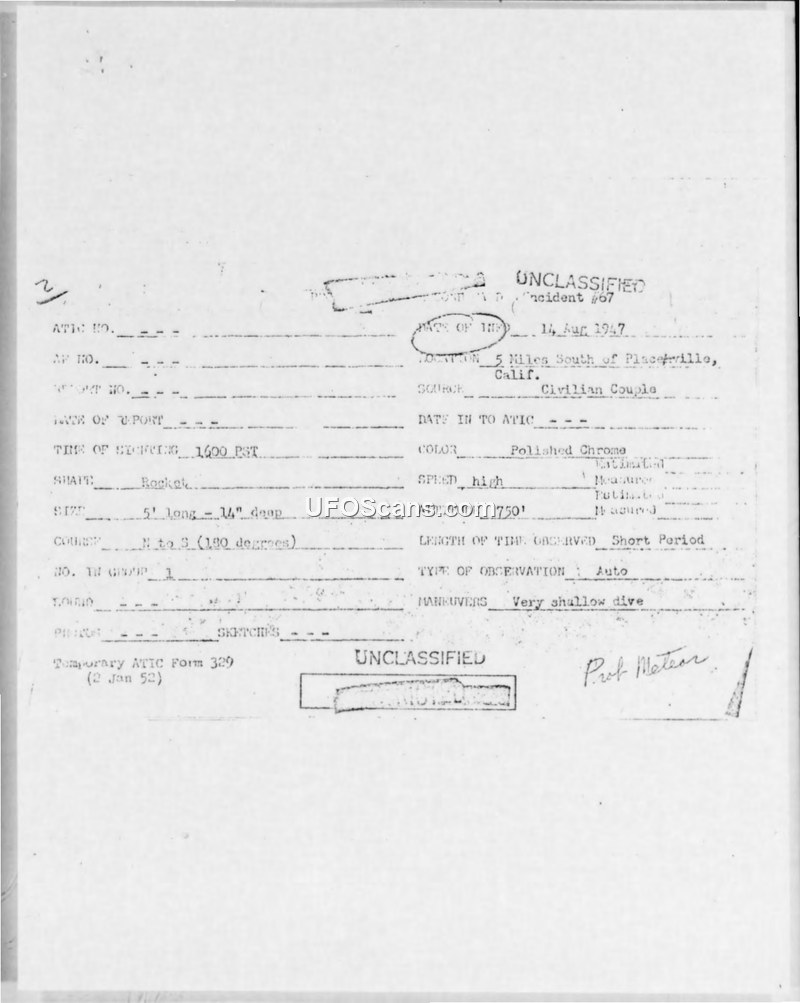 2
UNCLASSIFIED
Incident #67
ATIC NO. - - -
DATE OF INFO 14 Aug 1947
AF NO. - - -
LOCATION 5 Miles South of Placerville, Calif.
REPORT NO. - - -
SOURCE Civilian Couple
DATE OF REPORT - - -
DATE IN TO ATIC - - -
TIME OF SIGHTING 1600 PST
COLOR Polished Chrome
SHAPE Rocket
SPEED high
Estimated
Measured
SIZE 5' long - 14" deep
750'
Estimated
Measured
UFOScans.com
COURSE N to S (180 degrees)
LENGTH OF TIME OBSERVED Short Period
NO. IN GROUP 1
TYPE OF OBSERVATION Auto
SOUND - - -
MANEUVERS Very shallow dive
PHOTOS - - - SKETCHES - - -
Temporary ATIC Form 329
(2 Jan 52)
UNCLASSIFIED
Prob Meteor